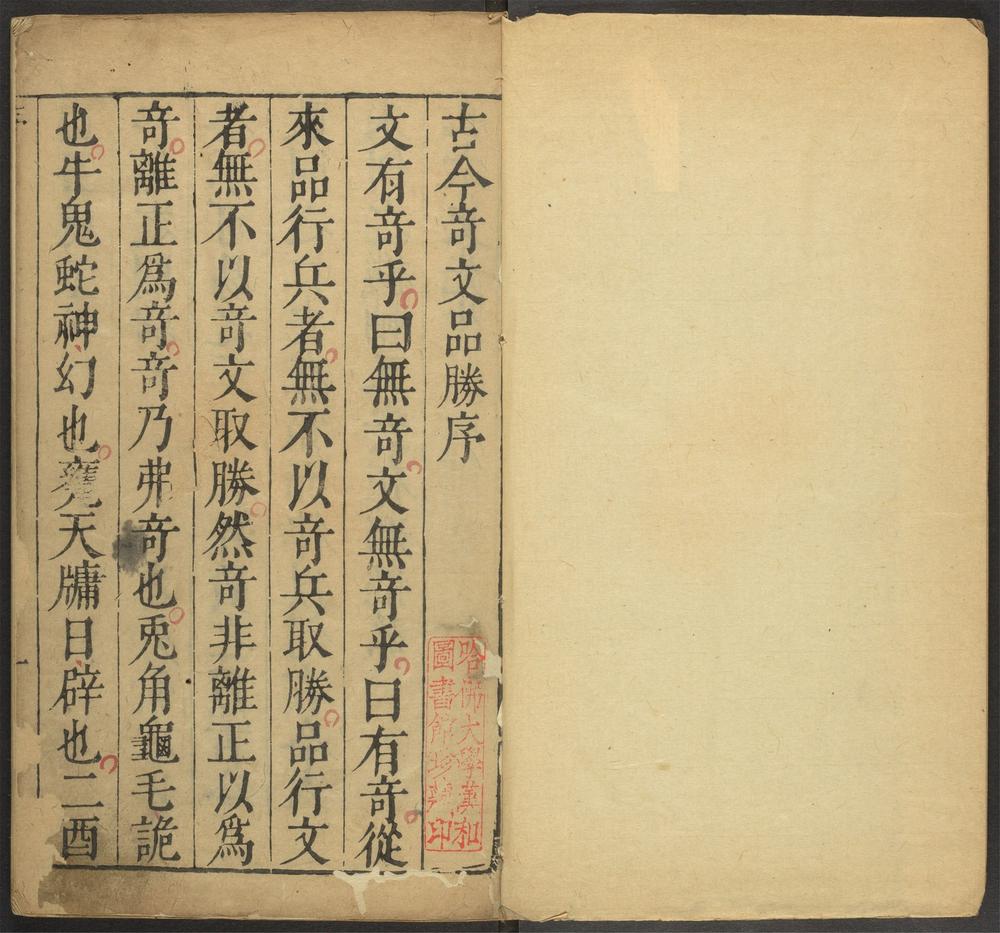 古今竒文品勝序
文有竒乎曰無竒文無竒乎曰有竒從
來品行兵者無不以竒兵取勝品行文
者無不以竒文取勝然竒非離正以爲
竒離正爲竒竒乃弗竒也兎角龜毛詭
也牛鬼蛇神幻也甕天牗日辟也二酉
哈佛大學漢和
圖書館珍藏印